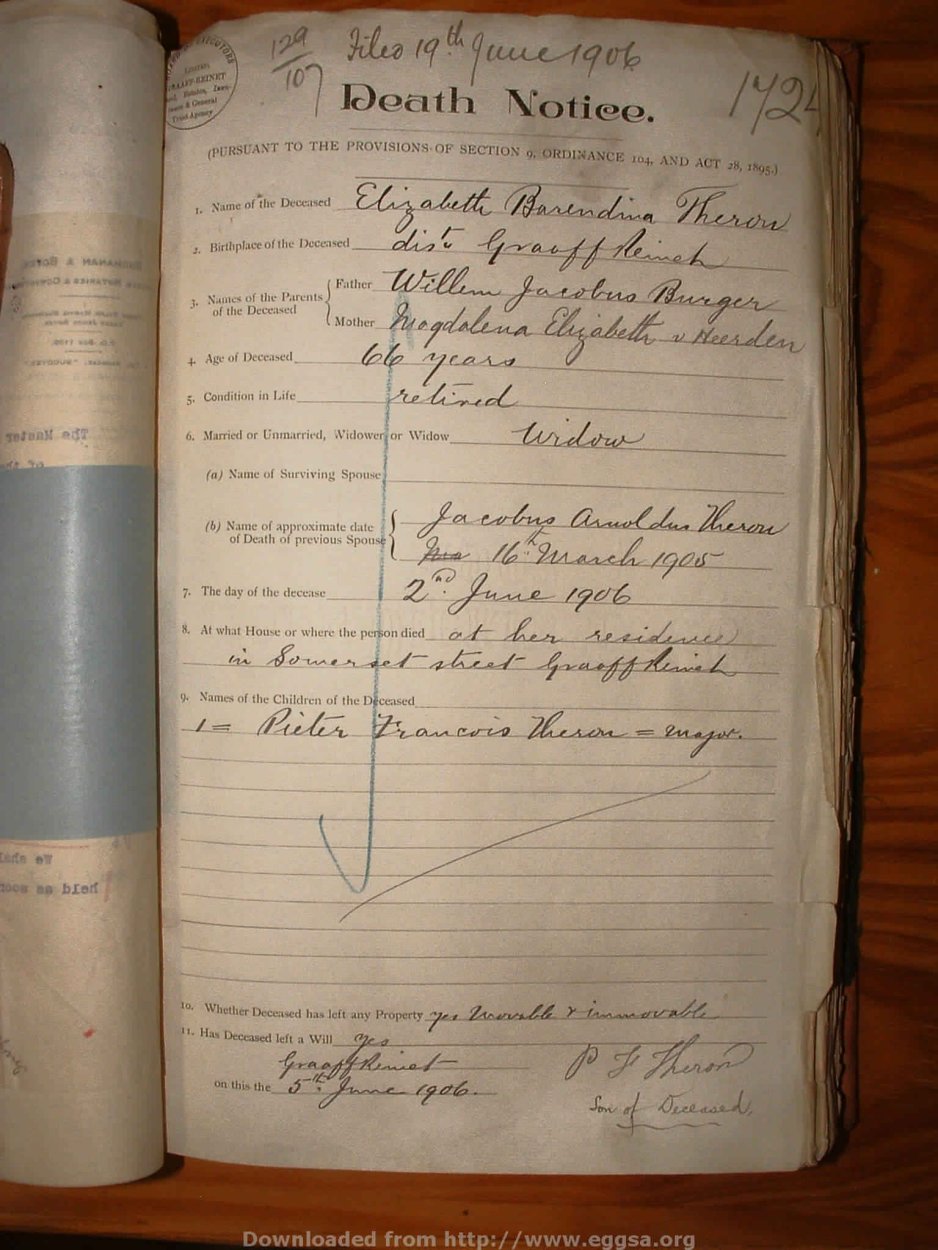 129
107
Filed 19th June 1906
1724
BOARD OF EXECUTORS
GRAAFF-REINET
& General
Trust Agency
Death Notice.
(PURSUANT TO THE PROVISIONS OF SECTION 9, ORDINANCE 104, AND ACT 28, 1895.)
1. Name of the Deceased Elizabeth Barendina Theron
2. Birthplace of the Deceased dist: Graaff Reinet
3. Names of the Parents of the Deceased { Father Willem Jacobus Burger
Mother Magdalena Elizabeth v Heerden
4. Age of Deceased 66 years
5. Condition in Life retired
6. Married or Unmarried, Widower or Widow Widow
(a) Name of Surviving Spouse
(b) Name of approximate date of Death of previous Spouse { Jacobus Arnoldus Theron
16th March 1905
7. The day of the decease 2nd June 1906
8. At what House or where the person died at her residence
in Somerset street Graaff Reinet
9. Names of the Children of the Deceased
1 = Pieter Francois Theron = major.
10. Whether Deceased has left any Property yes Movable & immovable
11. Has Deceased left a Will yes
Graaff Reinet
on this the 5th June 1906.
P F Theron
Son of Deceased.
The Master
We shal
held as soon
Downloaded from http://www.eggsa.org